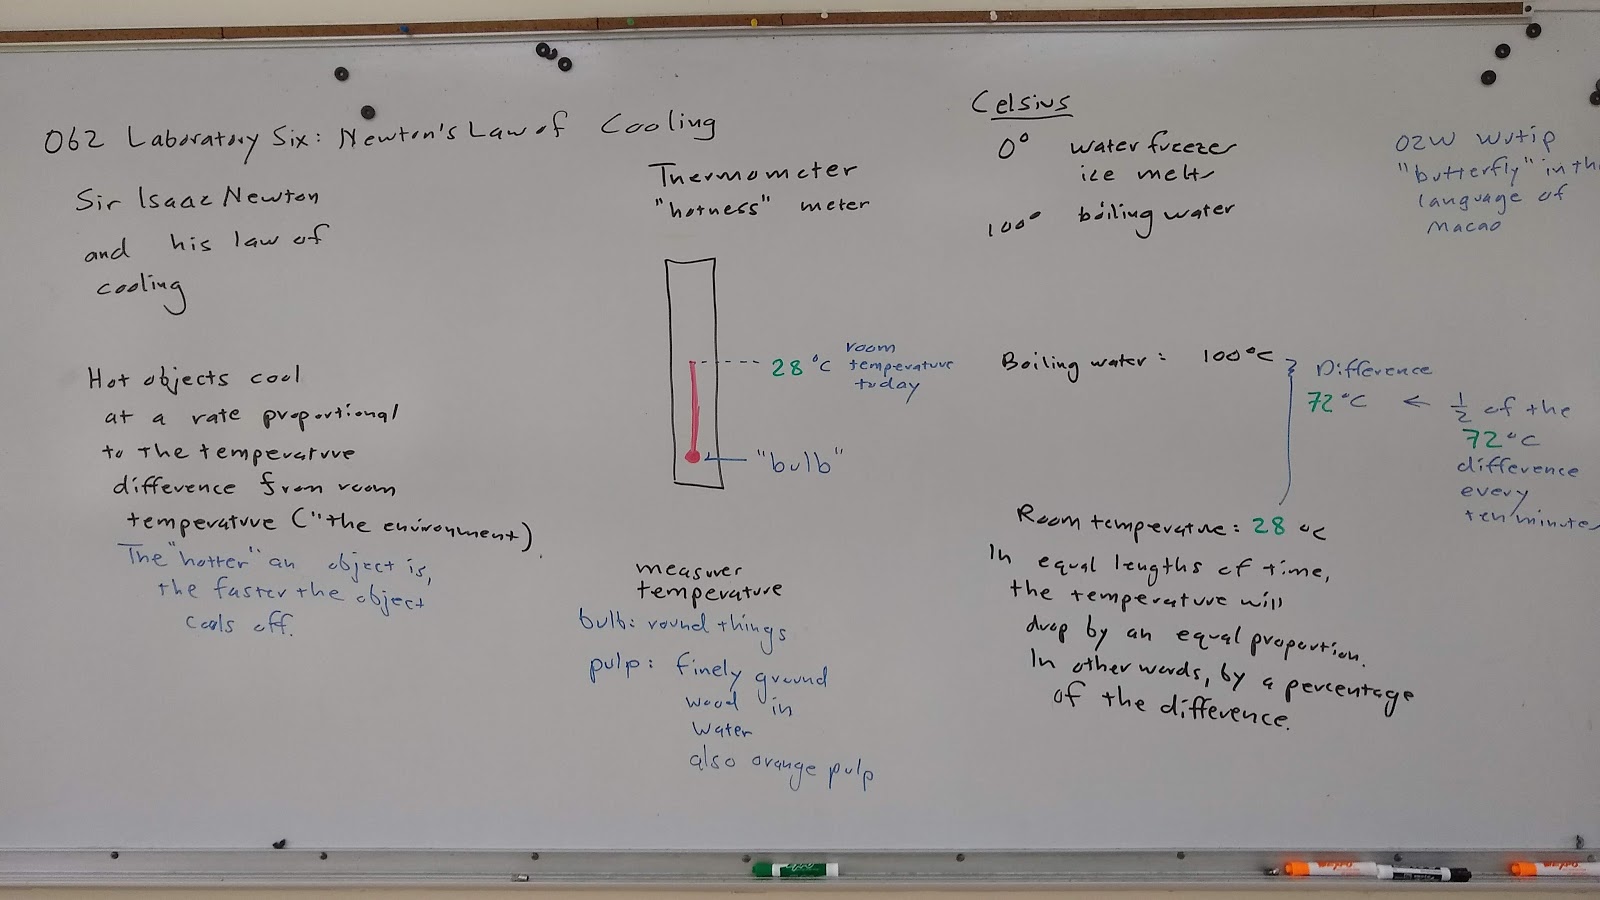 062 Laboratory Six: Newton's Law of Cooling
Sir Isaac Newton
and his law of
cooling
Hot objects cool
at a rate proportional
to the temperature
difference from room
temperature ("the environment).
The "hotter" an object is,
the faster the object
cools off.
Thermometer
"hotness" meter
28 °C room
temperature
today
"bulb"
measures
temperature
bulb: round things
pulp: finely ground
wood in
water
also orange pulp
Celsius
0° water freezes
ice melts
100° boiling water
Boiling water: 100°C
Difference
72°C ← 1/2 of the
72°C
difference
every
ten minutes
Room temperature: 28 °C
In equal lengths of time,
the temperature will
drop by an equal proportion.
In other words, by a percentage
of the difference.
"butterfly" in the
language of
Macao